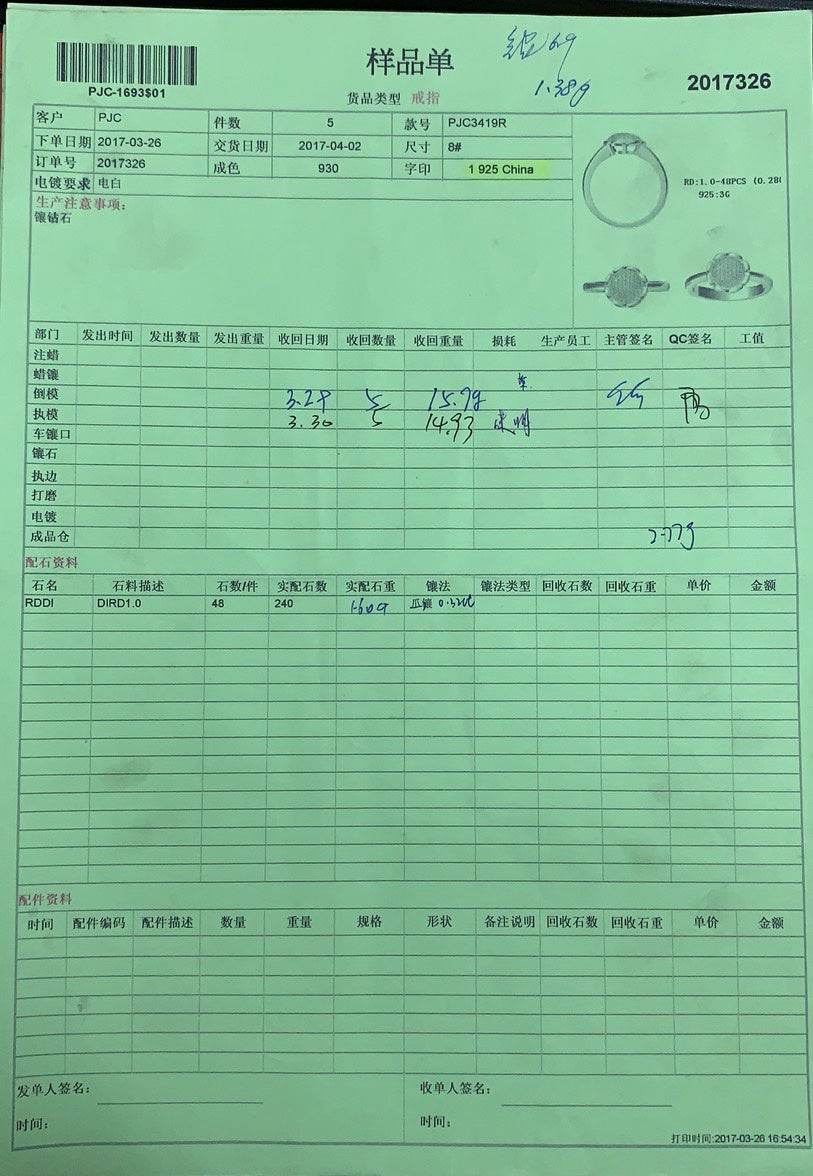 样品单
1.38g
PJC-1693$01
货品类型 戒指
2017326
客户 PJC 件数 5 款号 PJC3419R
下单日期 2017-03-26 交货日期 2017-04-02 尺寸 8#
订单号 2017326 成色 930 字印 1 925 China
电镀要求 电白
生产注意事项:
镶钻石
RD:1.0-48PCS (0.28
925:3G
部门 发出时间 发出数量 发出重量 收回日期 收回数量 收回重量 损耗 生产员工 主管签名 QC签名 工值
注蜡
蜡镶
倒模 3.29 5 15.7g
执模 3.30 5 14.93
车镶口
镶石
执边
打磨
电镀
成品仓
配石资料
石名 石料描述 石数/件 实配石数 实配石重 镶法 镶法类型 回收石数 回收石重 单价 金额
RDDI DIRD1.0 48 240
配件资料
时间 配件编码 配件描述 数量 重量 规格 形状 备注说明 回收石数 回收石重 单价 金额
发单人签名: 收单人签名:
时间: 时间:
打印时间:2017-03-26 16:54:34